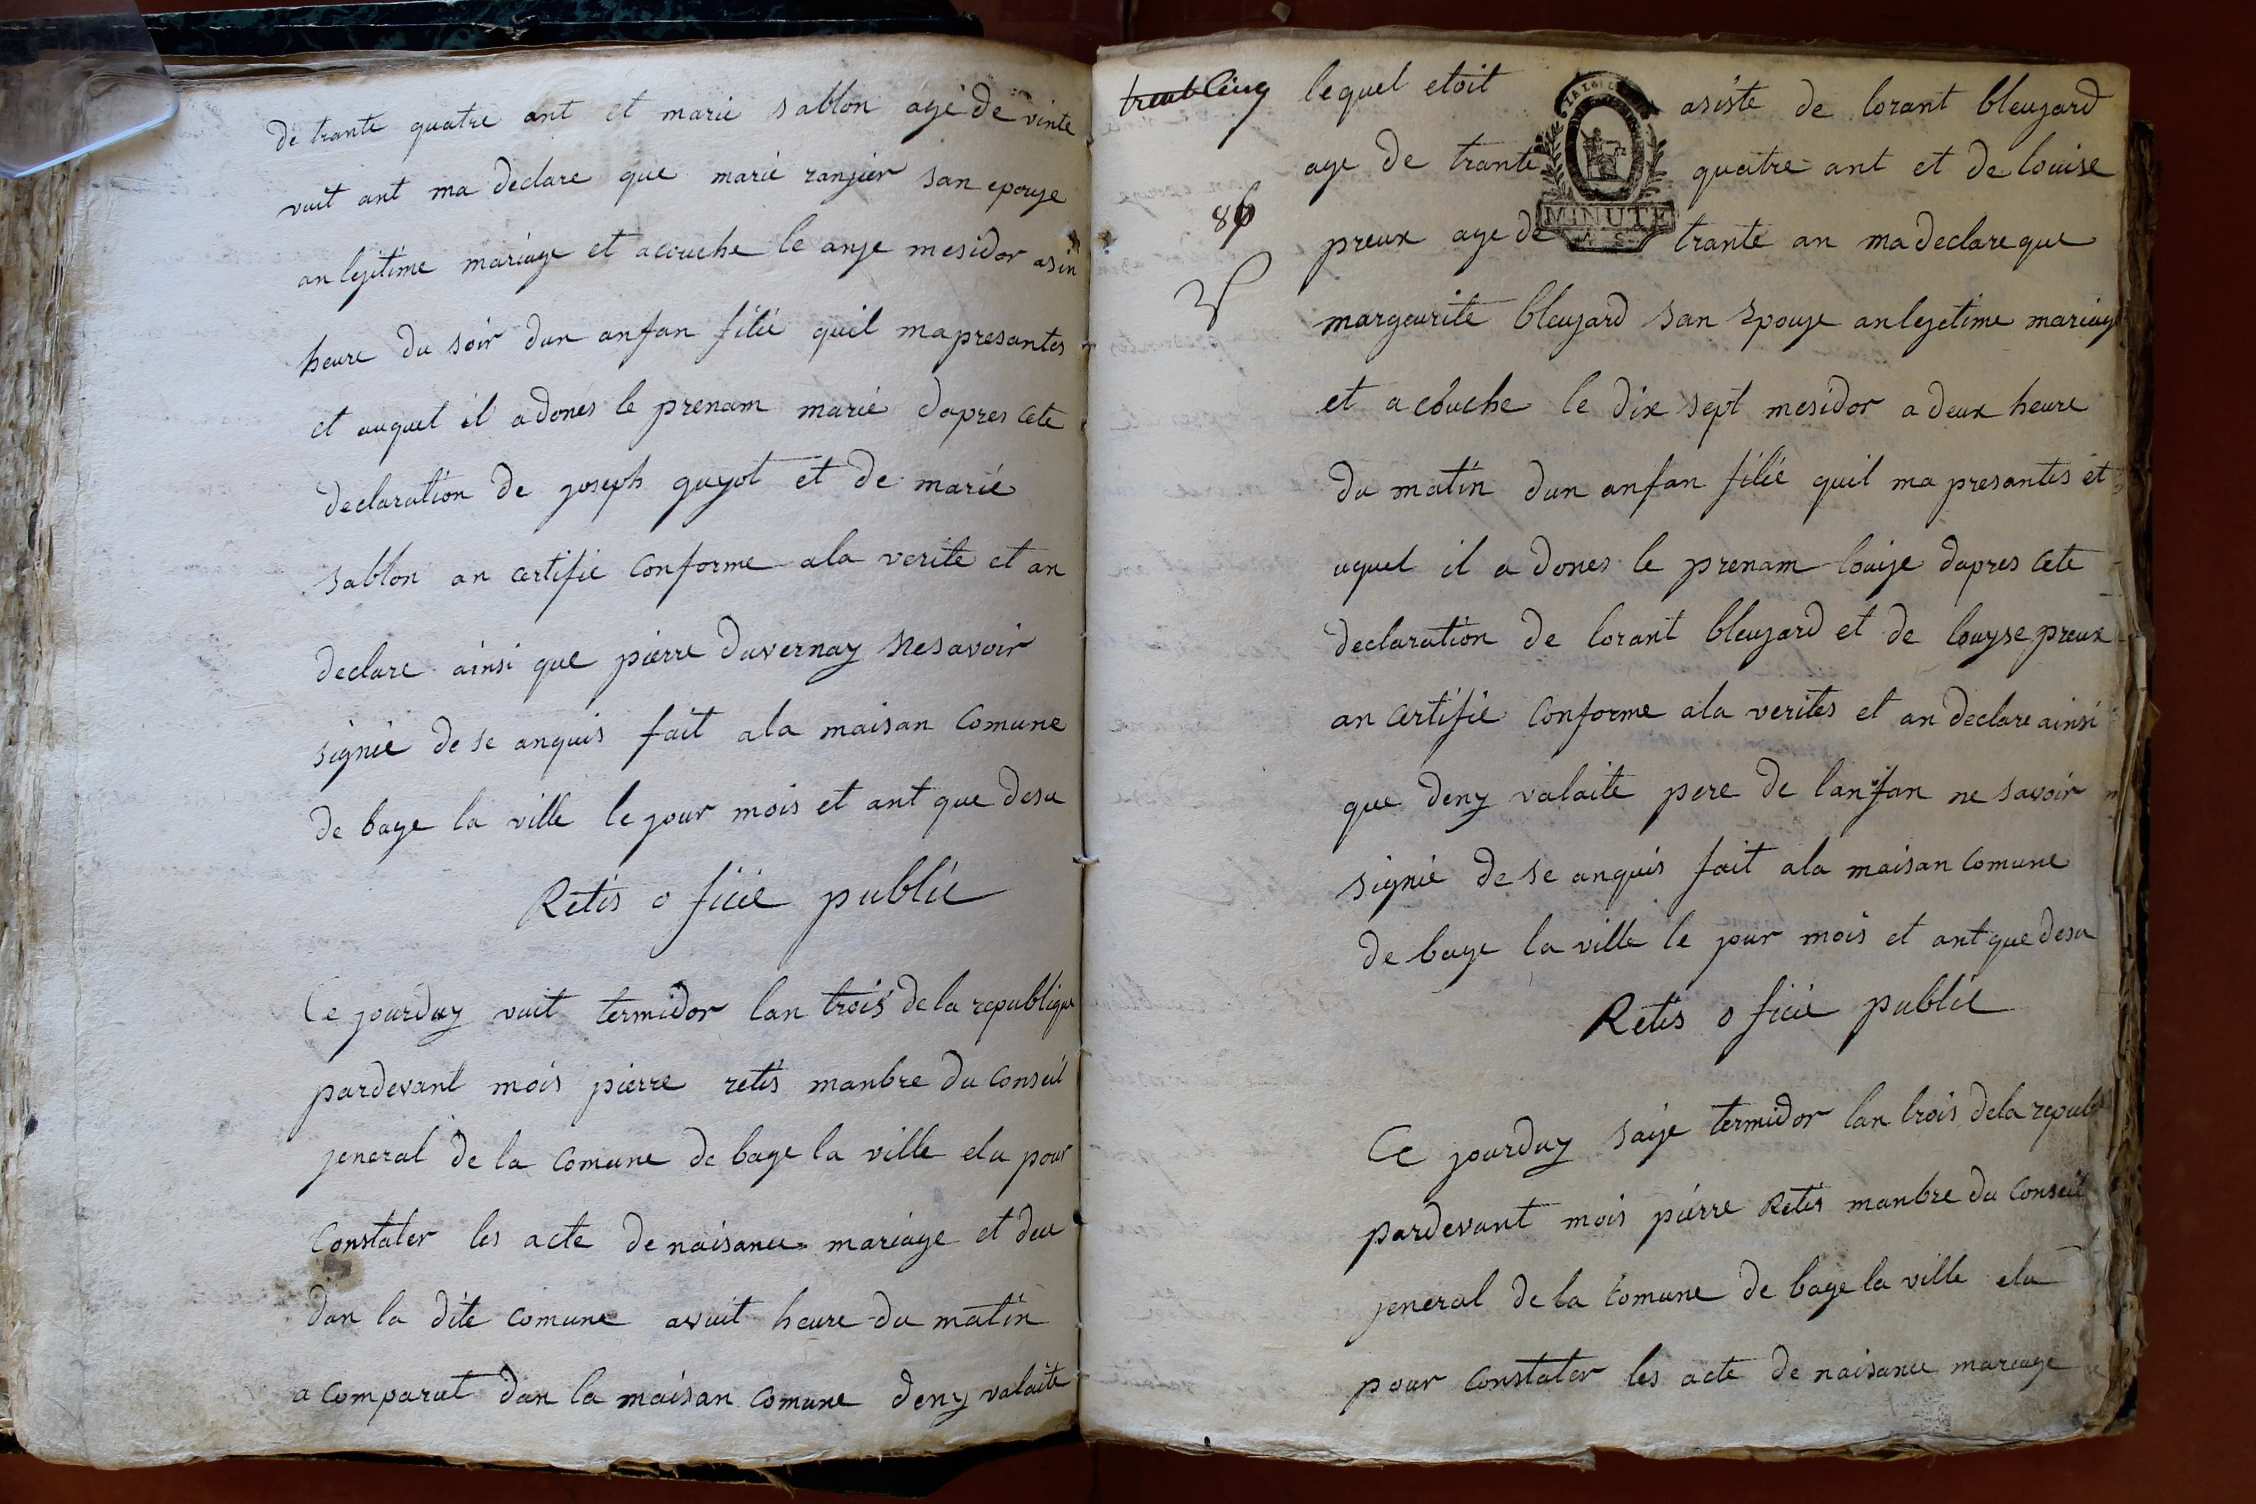 de trante quatre ant et marie sablon age de vinte
vuit ant ma declare que marie ranjier san epouje
an lejitime mariage et acouche le anje mesidor asin
heure du soir dun anfan filie quil mapresantes
et auquel il adones le prenam marie dapres cete
declaration de joseph guyot et de marie
sablon an certifie conforme ala verite et an
declare ainsi que pierre duvernay ne savoir
signie de se anquis fait ala maisan comune
de bage la ville le jour mois et ant que desu
Retis o ficie publie
Ce jourduy vuit termidor lan trois de la republique
pardevant mois pierre retis manbre du conseil
jeneral de la comune de bage la ville elu pour
constater les acte de naisance mariage et deu
dan la dite comune avuit heure du matin
a comparut dan la maisan comune deny valaite
lequel etoit asiste de lorant bleujard
LA LOI
age de trante quatre ant et de louise
MINUTE
86
preux age de trante an ma declare que
margeurite bleujard san epouje anlejetime mariage
et a couche le dix sept mesidor a deux heure
du matin dun anfan filie quil ma presantes et
aquel il a dones le prenam louije dapres cete
declaration de lorant bleujard et de louyse preux
an certifie conforme ala verites et an declare ainsi
que deny valaite pere de lanfan ne savoir
signie de se anquis fait ala maisan comune
de bage la ville le jour mois et ant que desu
Retis o ficie publie
Ce jourduy saije termidor lan trois dela republi
pardevant mois pierre Retis manbre du conseil
jeneral de la comune de bage la ville elu
pour constater les acte de naisance mariage